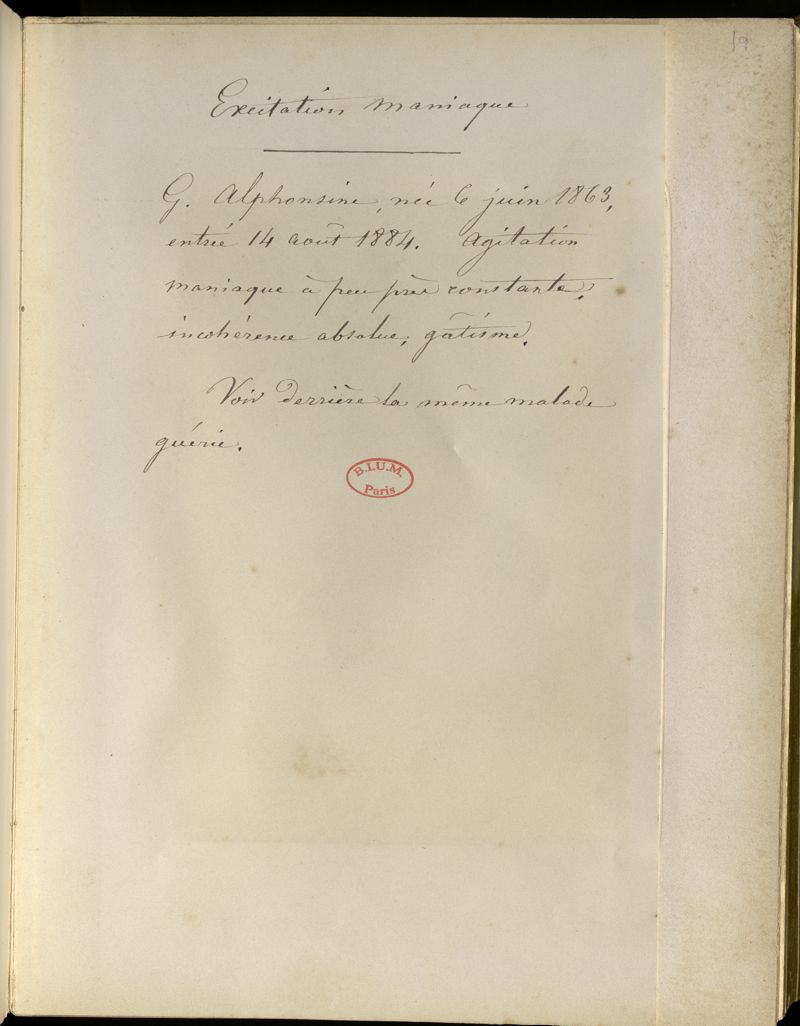 19
Excitation maniaque
G. Alphonsine, née 6 juin 1863,
entrée 14 août 1884. Agitation
maniaque à peu près constante,
incohérence absolue, gâtisme.
Voir derrière la même malade
guérie.
B.I.U.M.
Paris